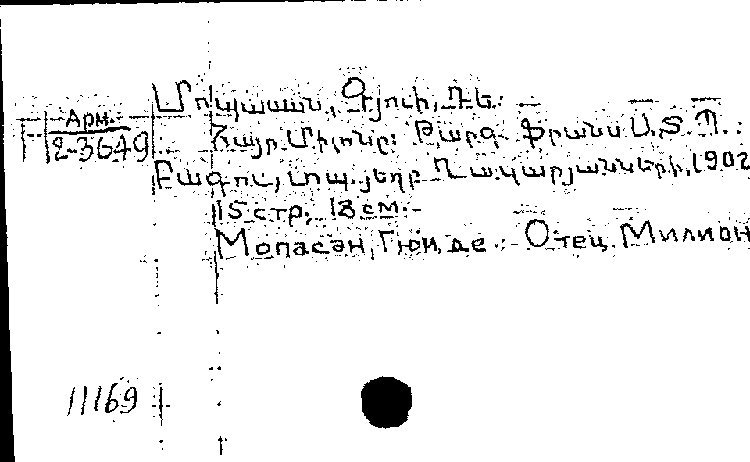 Մոպասան, Գյուի, Դե.
Арм.
2-3649
Հայր Միլոնը: Թարգ. Ֆրանս Ա.Տ.Պ.:
Բագու, տպ. եղբ Ղակարյանների, 1902
15 стр. 18 см.
Мопасан, Гюи, де. Отец Милион
11169